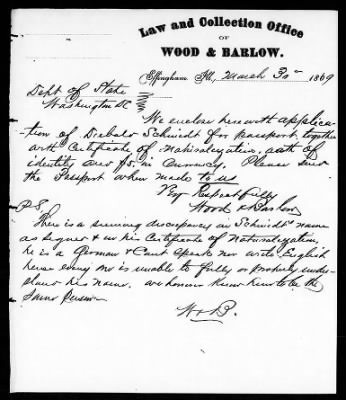 Law and Collection Office
OF
WOOD & BARLOW.
Effingham Ill., March 30th 1869
Dept of State
Washington DC
We enclose herewith applica-
tion of Diebold Schmidt for passport, together
with Certificate of Naturalization, oath of
identity and $5. in Currency. Please send
the Passport when made to us
Very Respectfully
Wood & Barlow
P.S.
There is a seeming discrepancy in Schmidt's name
as signed & in his Certificate of Naturalization,
he is a German & Can't Speak nor write English
hence every one is unable to fully or properly under-
stand his name. we however know him to be the
Same Person
W & B.